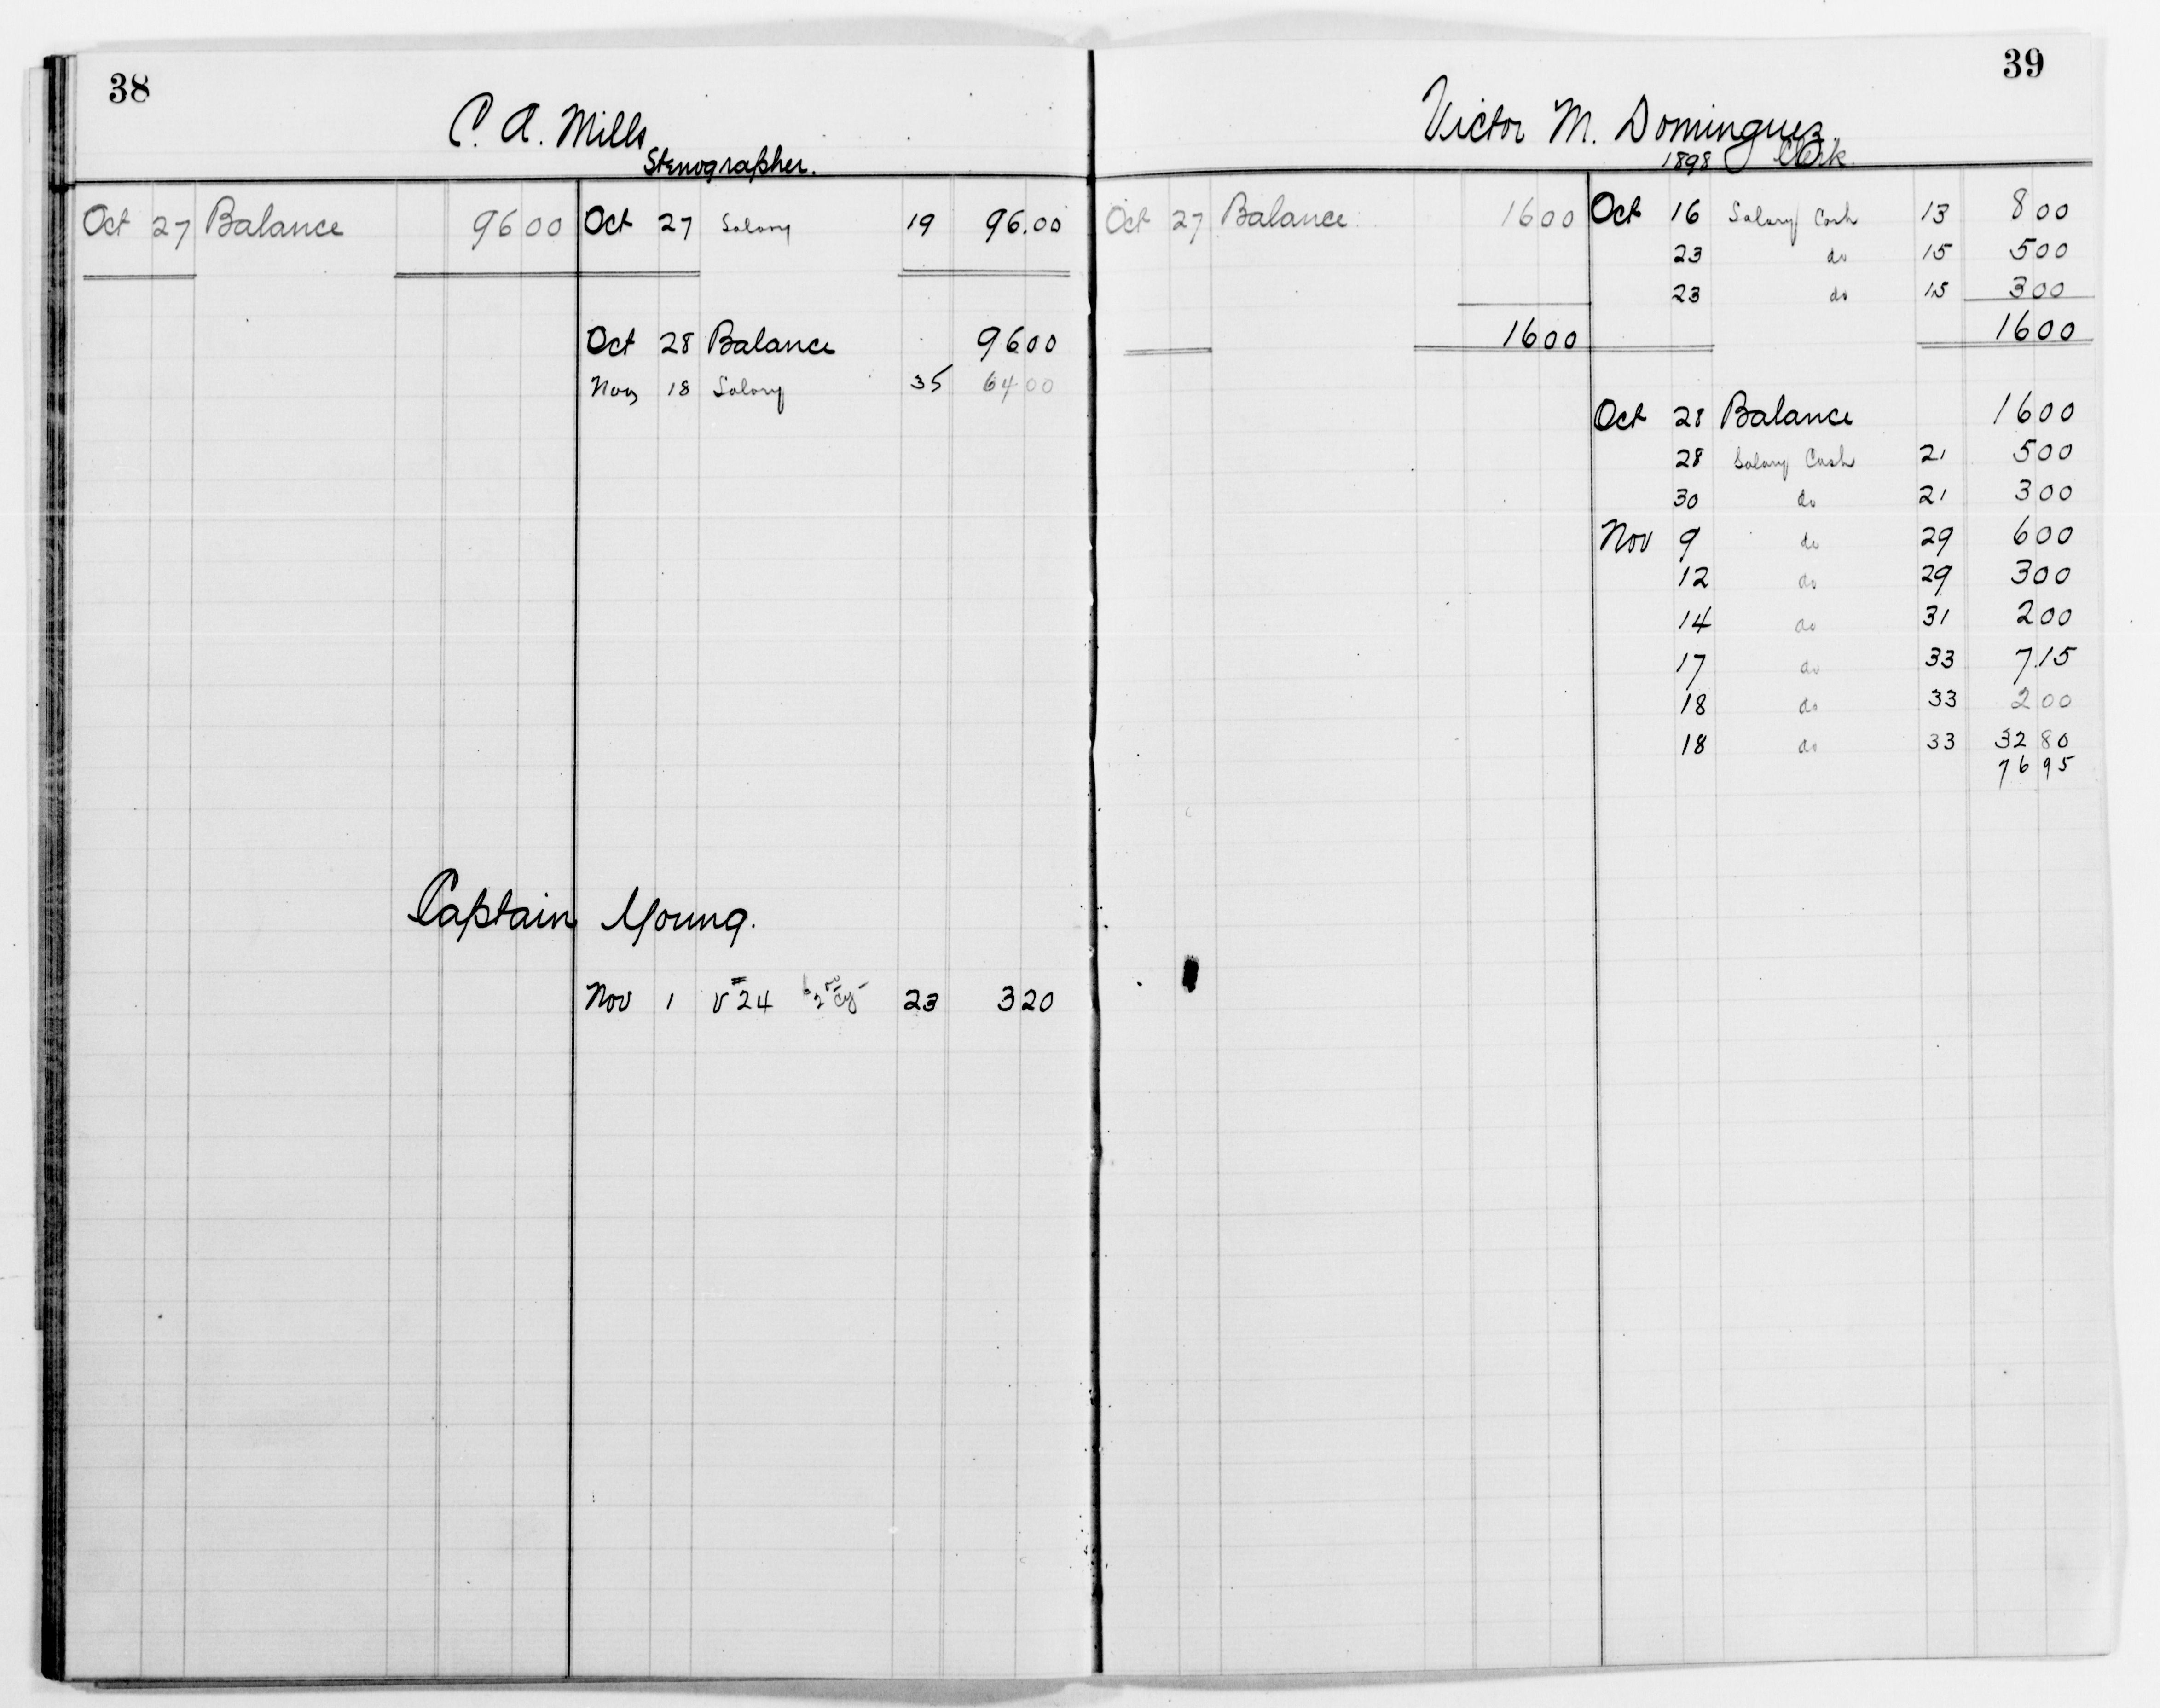 38
C. A. Mills
Stenographer.
Oct 27 Balance 96 00 Oct 27 Salary 19 96.00
Oct 28 Balance 96 00
Nov 18 Salary 35 64 00
Captain Young.
Nov 1 V 24 23 3 20
39
Victor M. Dominguez
1898 Clerk.
Oct 27 Balance 16 00 Oct 16 Salary Cash 13 8 00
23 do 15 5 00
23 do 15 3 00
16 00 16 00
Oct 28 Balance 16 00
28 Salary Cash 21 5 00
30 do 21 3 00
Nov 9 do 29 6 00
12 do 29 3 00
14 do 31 2 00
17 do 33 7.15
18 do 33 2 00
18 do 33 32 80
76 95